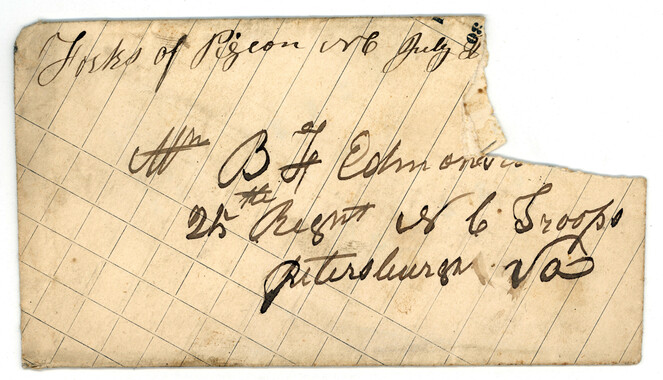 Forks of Pigeon N C July
Mr B F Edmons
25th Regnt N C Troops
Petersburgh Va